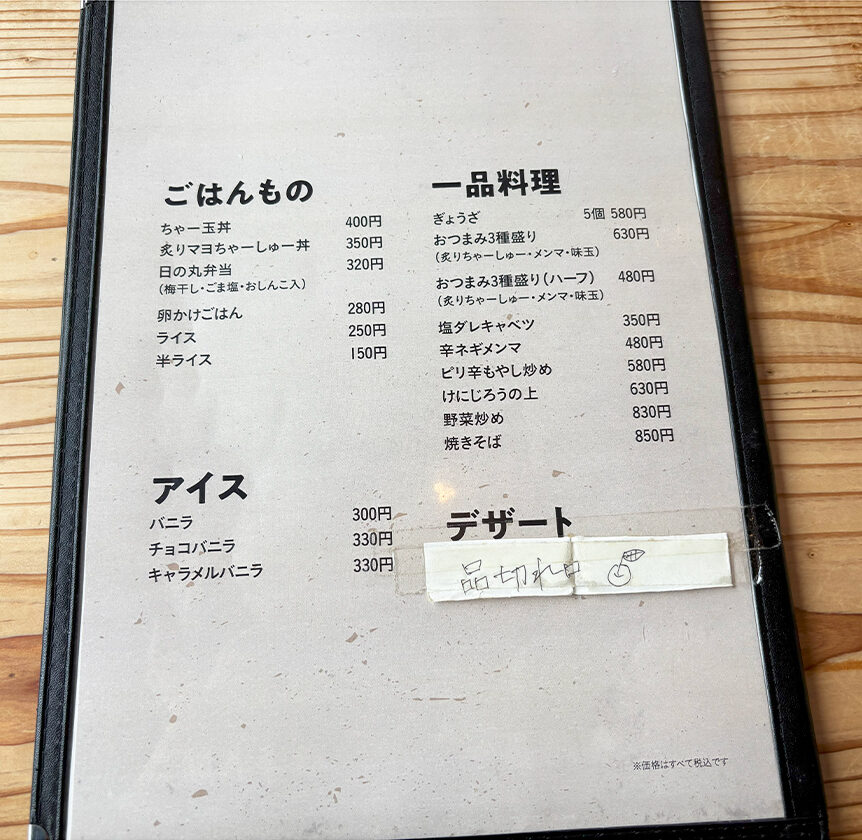 ごはんもの
ちゃー玉丼 400円
炙りマヨちゃーしゅー丼 350円
日の丸弁当 320円
(梅干し・ごま塩・おしんこ入)
卵かけごはん 280円
ライス 250円
半ライス 150円
一品料理
ぎょうざ 5個 580円
おつまみ3種盛り 630円
(炙りちゃーしゅー・メンマ・味玉)
おつまみ3種盛り(ハーフ) 480円
(炙りちゃーしゅー・メンマ・味玉)
塩ダレキャベツ 350円
辛ネギメンマ 480円
ピリ辛もやし炒め 580円
けにじろうの上 630円
野菜炒め 830円
焼きそば 850円
アイス
バニラ 300円
チョコバニラ 330円
キャラメルバニラ 330円
デザート
品切れ中
※価格はすべて税込です